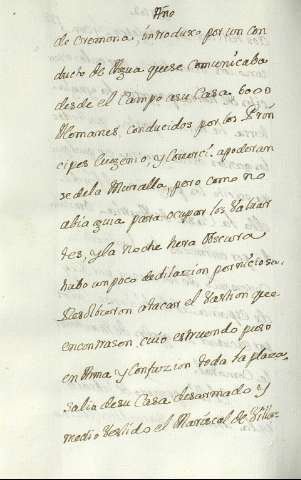 Año
de Cremona, introduxo, por un con
ducto de Agua que se comunicaba
desde el Campo asu Casa, 6000
Alemanes, conducidos por los Prin
cipes Eugenio, y Comerci. apoderan
se dela Muralla, pero como no
abia guia para ocupar los Valuar
tes, y la noche hera obscura
hubo un poco de dilacion perniciosa,
atacar el Vastion que
encontrason, cuio estruendo puso
en Arma y Confuzion toda la plaza,
Salio de su Casa desarmado y
medio Vestido el Mariscal de Ville